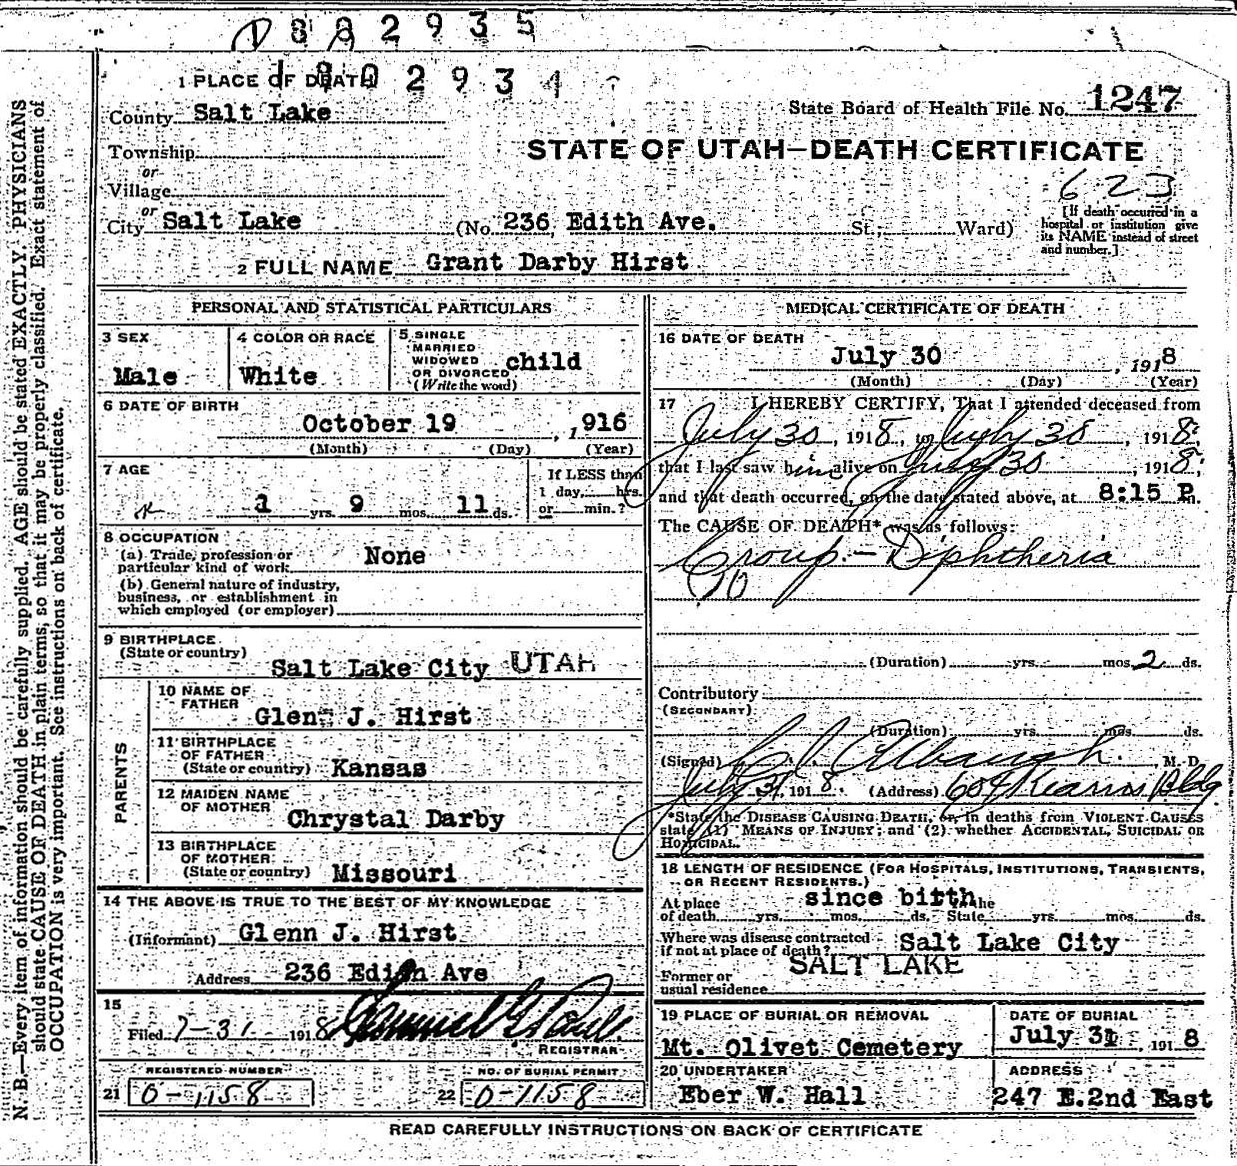 882935
1 PLACE OF DEATH 1802934
County Salt Lake
State Board of Health File No. 1247
Township
or
STATE OF UTAH—DEATH CERTIFICATE
Village
or
623
City Salt Lake (No. 236 Edith Ave. St.; Ward)
[If death occurred in a
hospital or institution give
its NAME instead of street
and number.]
2 FULL NAME Grant Darby Hirst
PERSONAL AND STATISTICAL PARTICULARS
3 SEX
Male
4 COLOR OR RACE
White
5 SINGLE
MARRIED
WIDOWED
OR DIVORCED
(Write the word)
child
6 DATE OF BIRTH
October 19, 1916
(Month) (Day) (Year)
7 AGE
1 yrs. 9 mos. 11 ds.
If LESS than
1 day, hrs.
or min.?
8 OCCUPATION
(a) Trade, profession or
particular kind of work None
(b) General nature of industry,
business, or establishment in
which employed (or employer)
9 BIRTHPLACE
(State or country)
Salt Lake City UTAH
PARENTS
10 NAME OF
FATHER
Glen J. Hirst
11 BIRTHPLACE
OF FATHER
(State or country) Kansas
12 MAIDEN NAME
OF MOTHER
Chrystal Darby
13 BIRTHPLACE
OF MOTHER
(State or country) Missouri
14 THE ABOVE IS TRUE TO THE BEST OF MY KNOWLEDGE
(Informant) Glenn J. Hirst
Address 236 Edith Ave
15
Filed 7-31 1918
REGISTRAR
REGISTERED NUMBER
21 0-1158
NO. OF BURIAL PERMIT
22 0-1158
MEDICAL CERTIFICATE OF DEATH
16 DATE OF DEATH
July 30, 1918
(Month) (Day) (Year)
17 I HEREBY CERTIFY, That I attended deceased from
July 30, 1918, to July 30, 1918,
that I last saw him alive on July 30, 1918,
and that death occurred, on the date stated above, at 8:15 P.m.
The CAUSE OF DEATH* was as follows:
Croup - Diphtheria
(Duration) yrs. mos. 2 ds.
Contributory
(SECONDARY)
(Duration) yrs. mos. ds.
(Signed) M. D.
July 31, 1918 (Address) 604 Kearns Bldg
*State the DISEASE CAUSING DEATH, or, in deaths from VIOLENT CAUSES
state (1) MEANS OF INJURY; and (2) whether ACCIDENTAL, SUICIDAL OR
HOMICIDAL.
18 LENGTH OF RESIDENCE (FOR HOSPITALS, INSTITUTIONS, TRANSIENTS,
OR RECENT RESIDENTS.)
At place since bitth In the
of death yrs. mos. ds. State yrs. mos. ds.
Where was disease contracted
if not at place of death? Salt Lake City
SALT LAKE
Former or
usual residence
19 PLACE OF BURIAL OR REMOVAL
Mt. Olivet Cemetery
DATE OF BURIAL
July 31, 1918
20 UNDERTAKER
Eber W. Hall
ADDRESS
247 E.2nd East
READ CAREFULLY INSTRUCTIONS ON BACK OF CERTIFICATE
N. B.—Every item of information should be carefully supplied. AGE should be stated EXACTLY. PHYSICIANS
should state CAUSE OF DEATH in plain terms, so that it may be properly classified. Exact statement of
OCCUPATION is very important. See instructions on back of certificate.